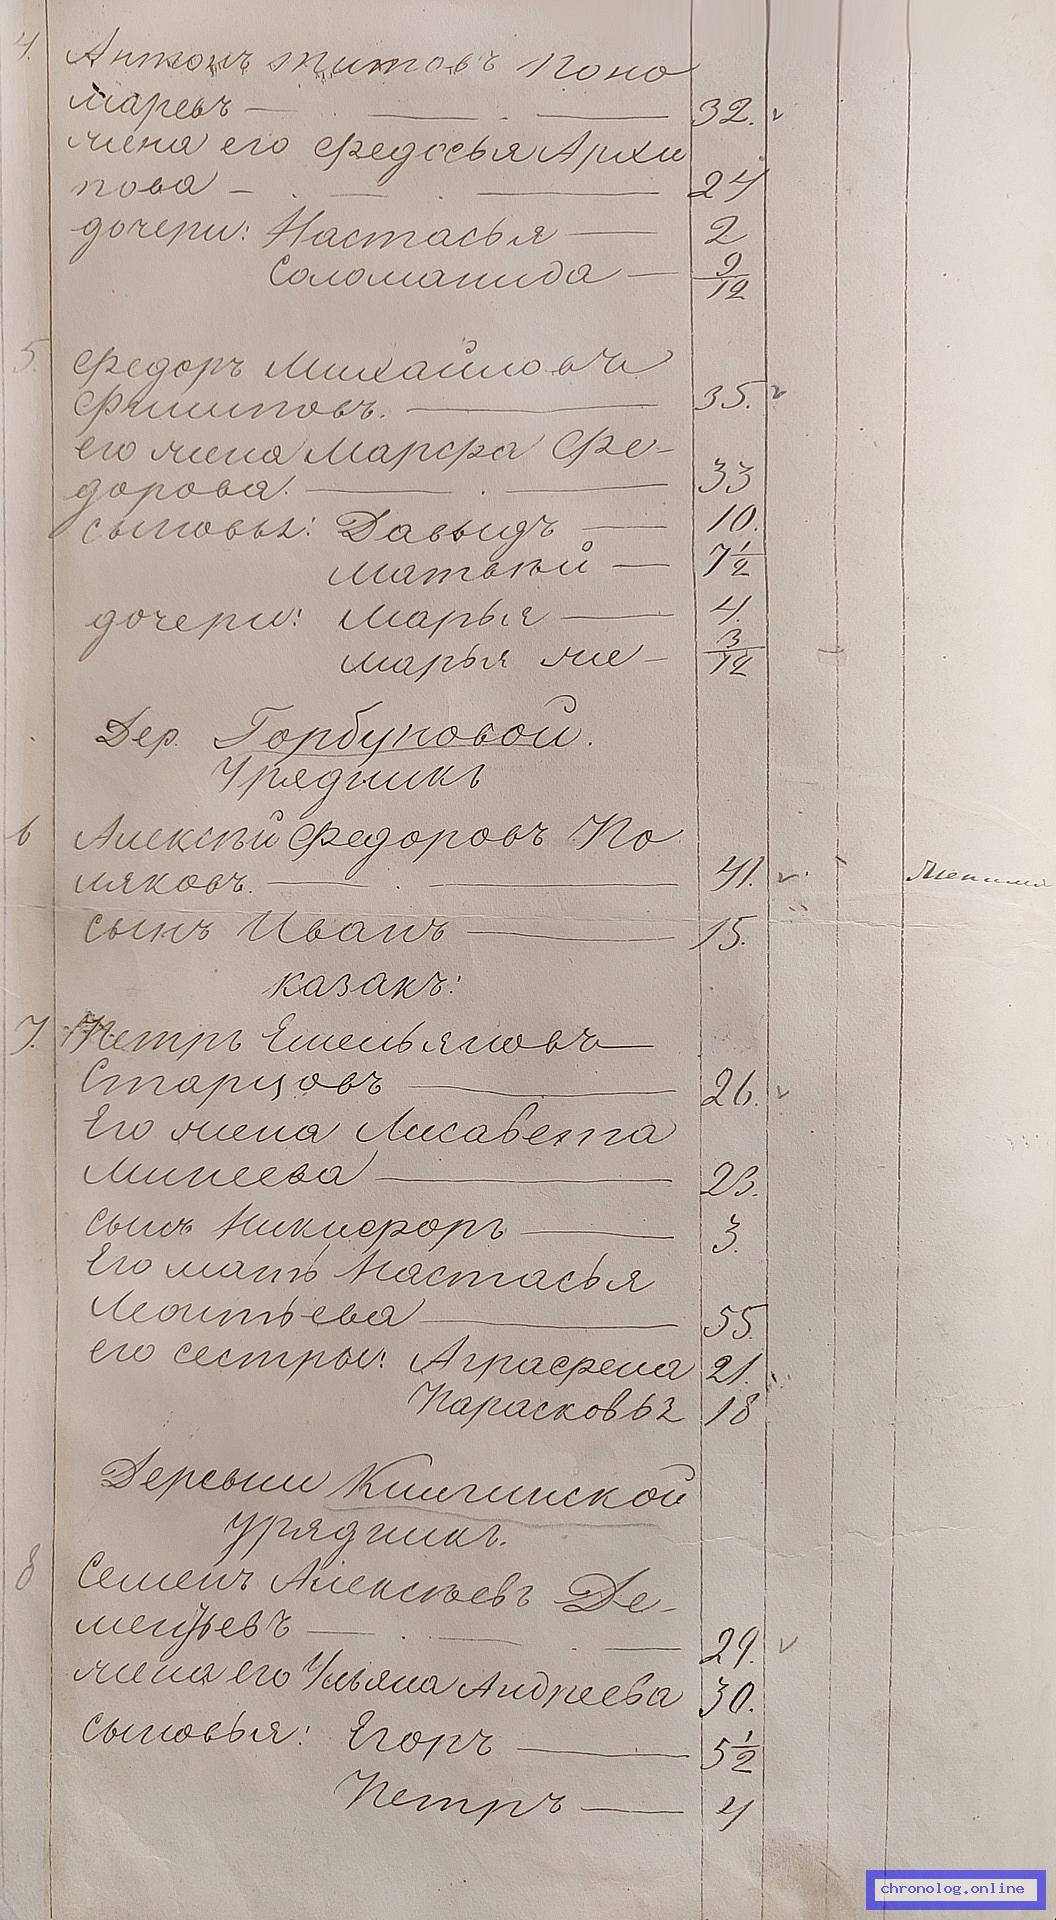 4. Антонъ Титовъ Поно
маревъ — 32.
жена его Федосья Архи
пова — 24
дочери: Настасья — 2
Соломанида — 9/12
5. Федоръ Михайловъ
Филиповъ. — 35.
его жена Марфа Фе-
дорова. — 33
сыновья: Давыдъ — 10.
Матвѣй — 7 1/2
дочери: Марья — 4.
Марья же — 3/12
Дер. Горбуновой.
Урядникъ
6 Алексѣй Федоровъ По
ляковъ. — 41.
сынъ Иванъ — 15.
казакъ:
7. Петръ Емельяновъ —
Старцовъ — 26.
Его жена Лисавета
Минеева — 23.
сынъ Никифоръ — 3.
Его мать Настасья
Леонтьева — 55.
его сестры: Аграфена 21.
Парасковья 18
Деревни Кинчинской
урядникъ.
8 Семенъ Алексѣевъ Де-
ментьевъ — 29.
жена его Ульяна Андреева 30.
сыновья: Егоръ — 5 1/2
Петръ — 4
chronolog.online